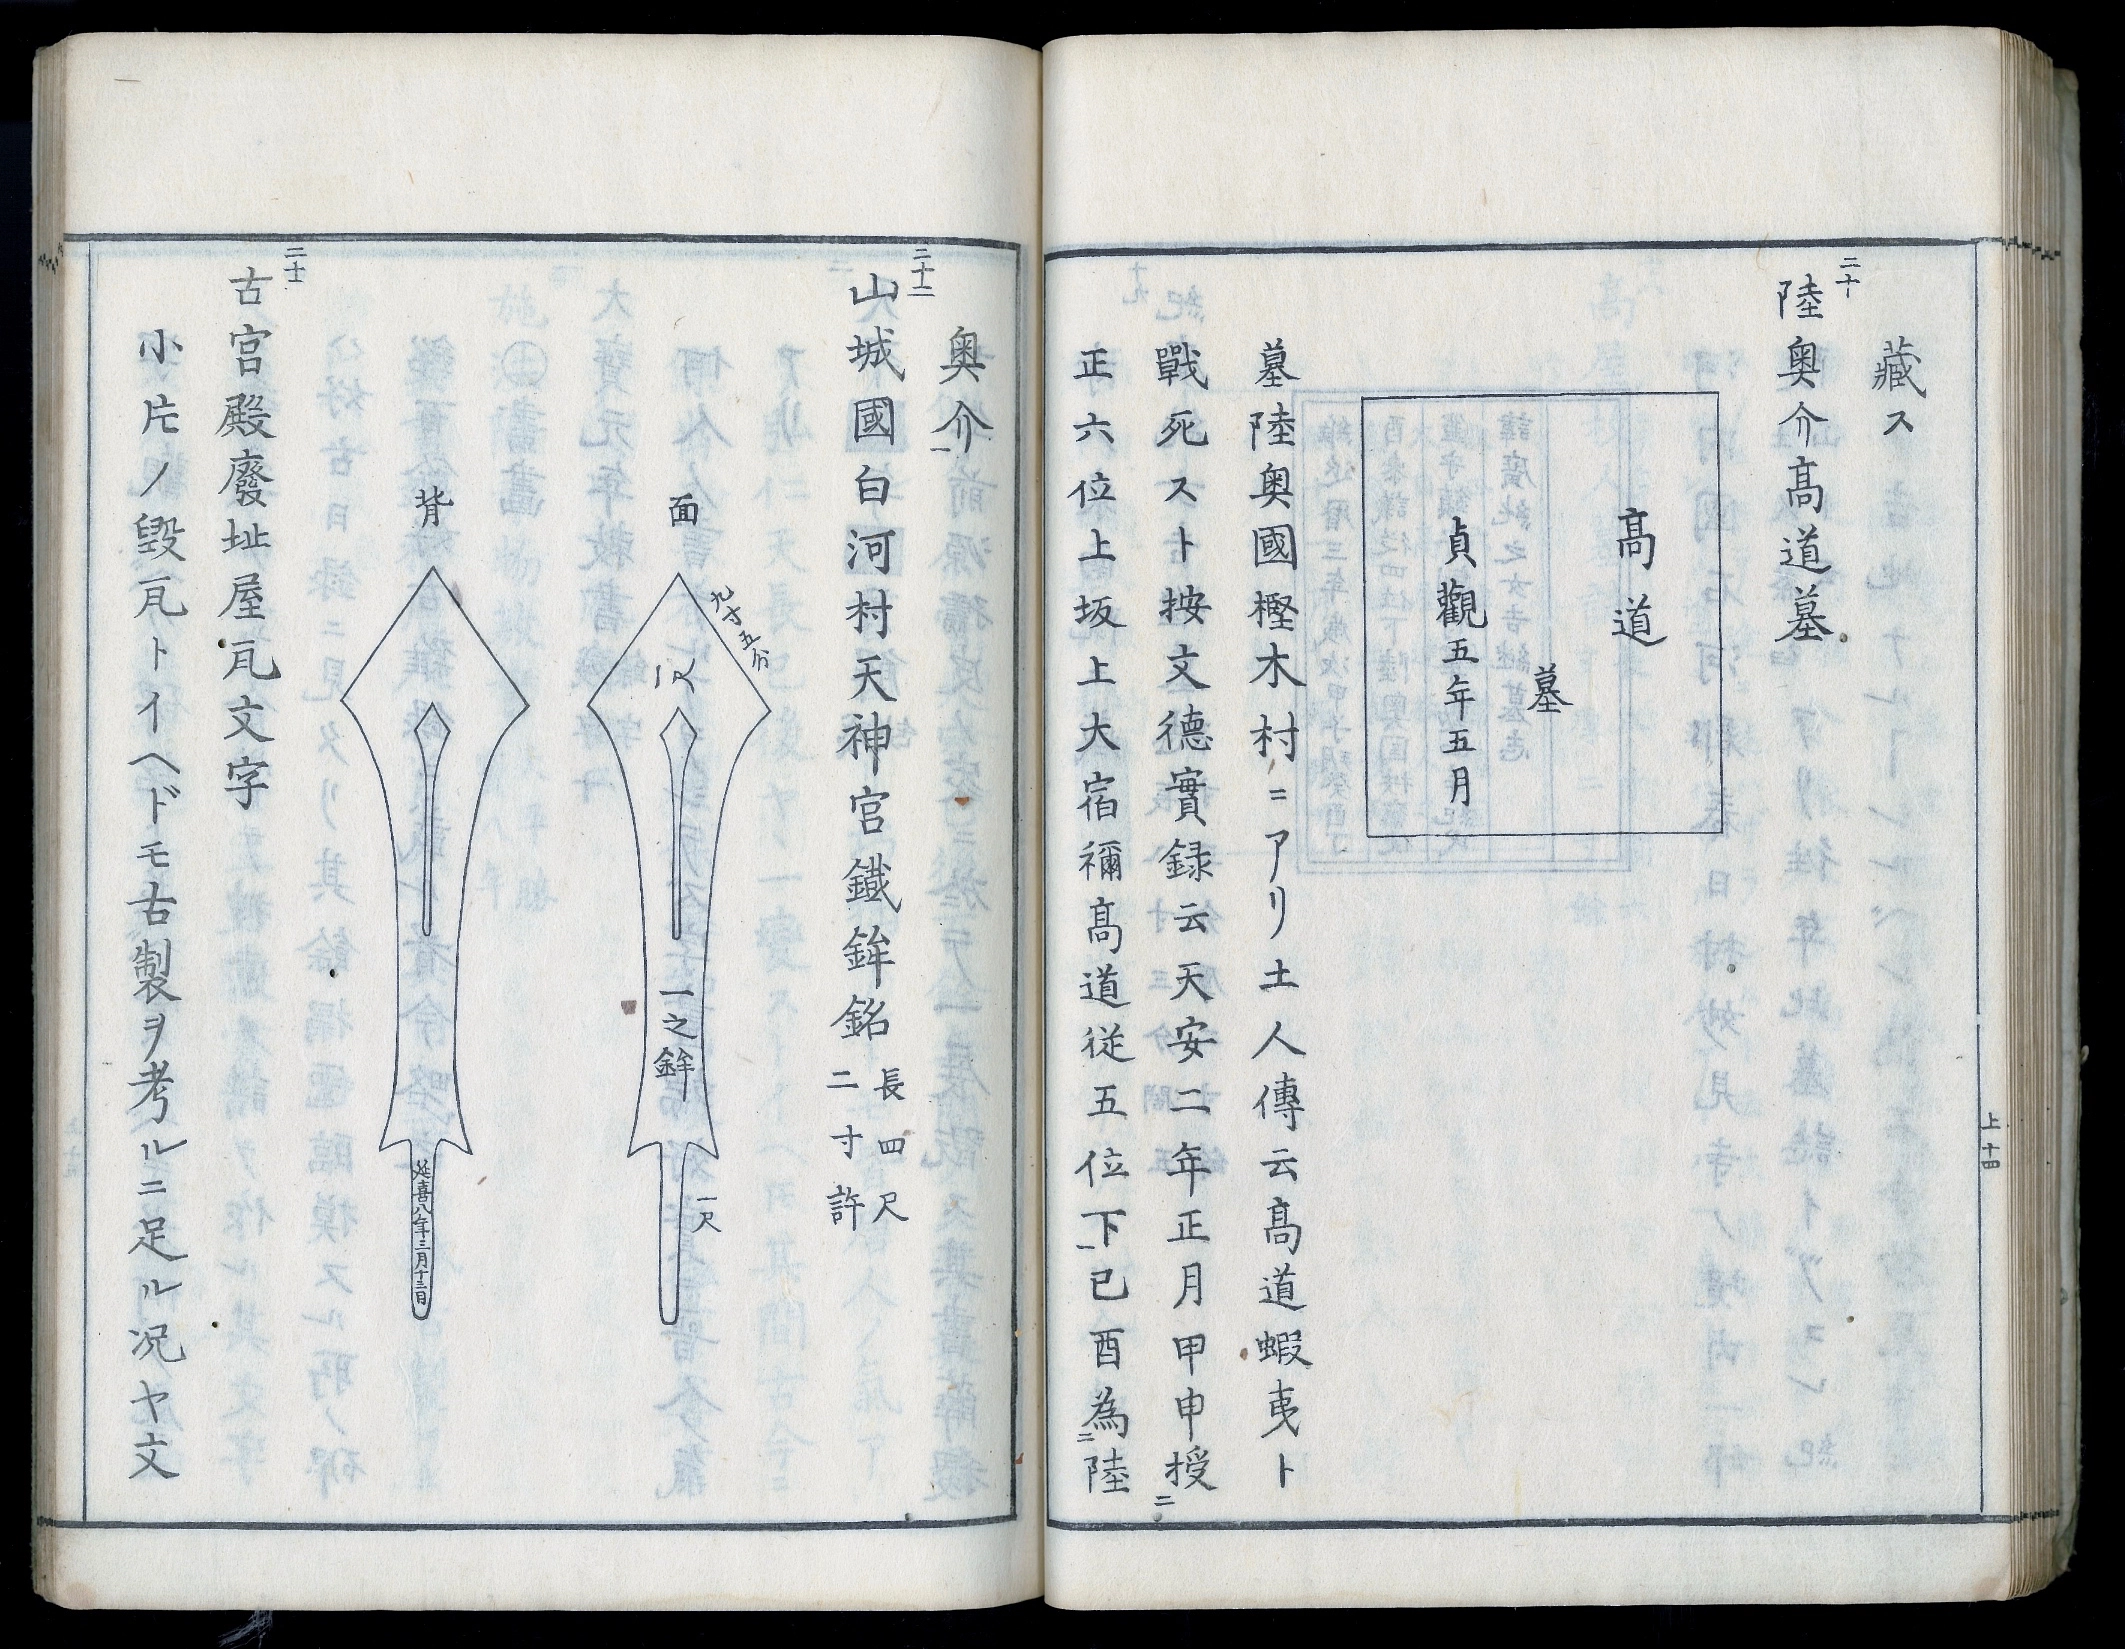 藏ス
二十
陸奥介髙道墓
髙道
墓
貞觀五年五月
墓陸奥國樫木村ニアリ土人傳云髙道蝦夷ト
戰死スト按文德實録云天安二年正月甲申授二
正六位上坂上大宿禰髙道従五位下一己酉為二陸
上十四
奥介一
二十一
山城國白河村天神宮鐵鉾銘
長四尺
二寸許
面
九寸五分
一尺
一之鉾
一尺
背
延喜八年三月十三日
二十二
古宮殿廢址屋瓦文字
小片ノ毀瓦トイヘドモ古製ヲ考ルニ足ル况ヤ文